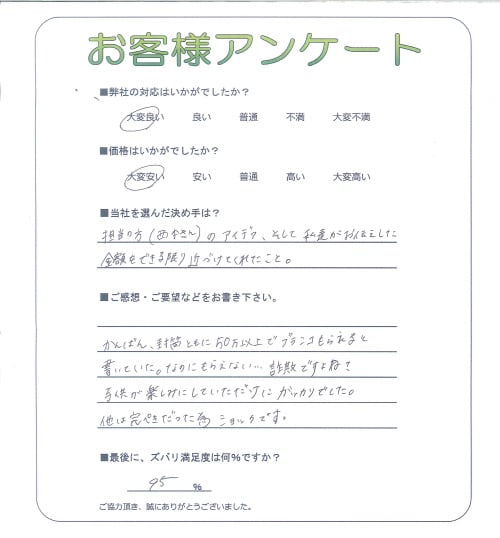 お客様アンケート
■弊社の対応はいかがでしたか?
大変良い 良い 普通 不満 大変不満
■価格はいかがでしたか?
大変安い 安い 普通 高い 大変高い
■当社を選んだ決め手は?
担当の方(西本さん)のアイデア、そして私達がお伝えした
金額をできる限り近づけてくれたこと。
■ご感想・ご要望などをお書き下さい。
かんばん、封筒ともに50万以上でブランコもらえると
書いていた。なのにもらえない…詐欺ですよね?
子供が楽しみにしていただけにがっかりでした。
他は完ぺきだった為ショックです。
■最後に、ズバリ満足度は何%ですか?
95 %
ご協力頂き、誠にありがとうございました。